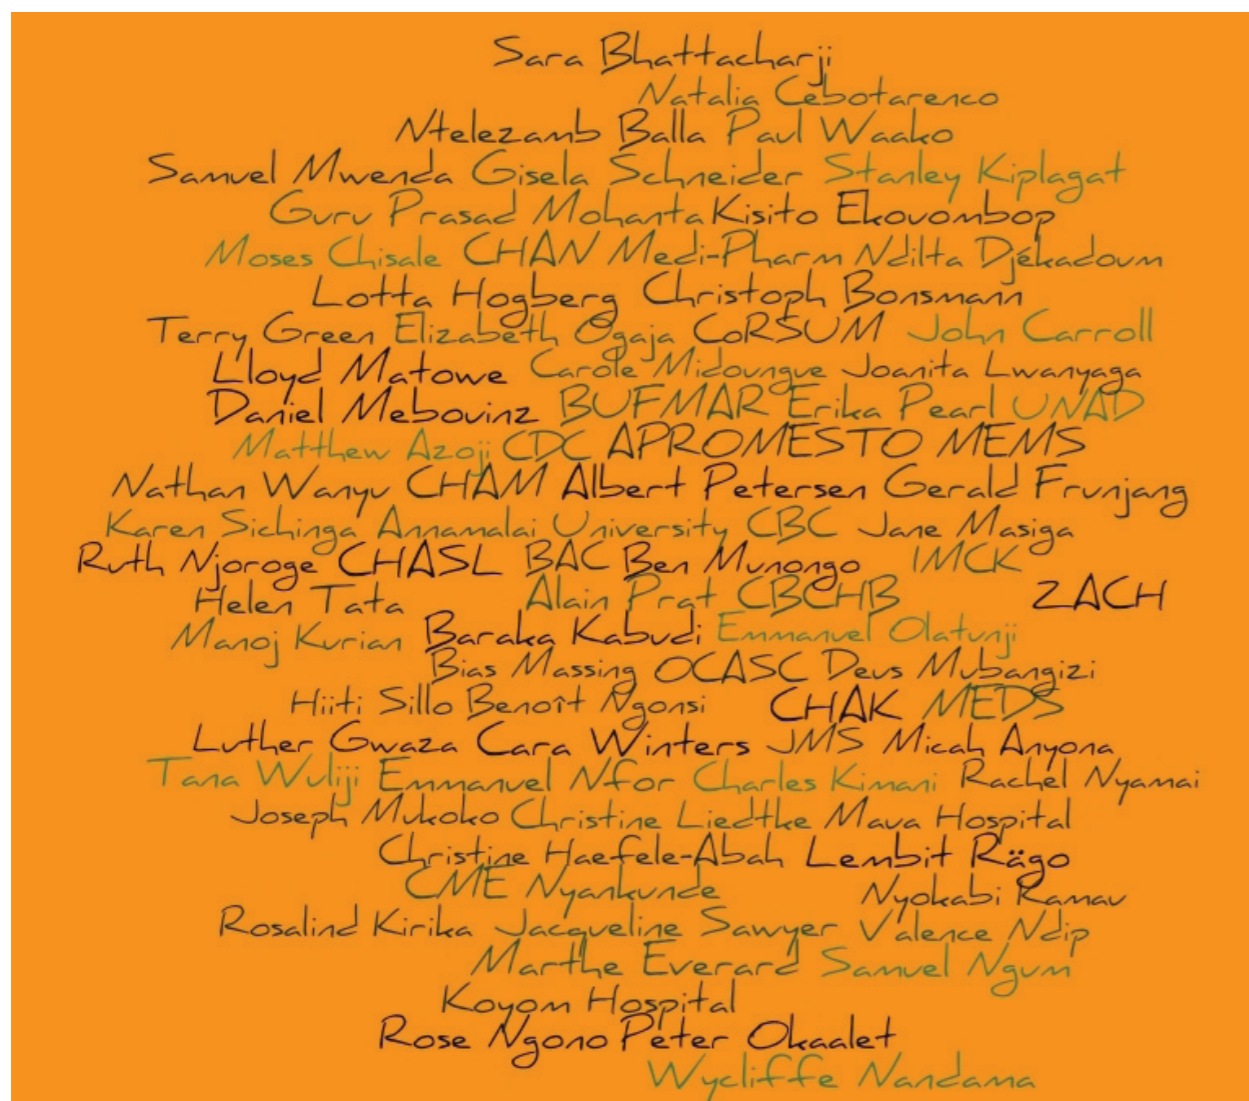 Sara Bhattacharji
Natalia Cebotarenco
Ntelezamb Balla Paul Waako
Samuel Mwenda Gisela Schneider Stanley Kiplagat
Guru Prasad Mohanta Kisito Ekouombop
Moses Chisale CHAN Medi-Pharm Ndilta Djékadoum
Lotta Hogberg Christoph Bonsmann
Terry Green Elizabeth Ogaja CoRSUM John Carroll
Lloyd Matowe Carole Midoungue Joanita Lwanyaga
Daniel Mebouinz BUFMAR Erika Pearl UNAD
Matthew Azoji CDC APROMESTO MEMS
Nathan Wanyu CHAM Albert Petersen Gerald Frunjang
Karen Sichinga Annamalai University CBC Jane Masiga
Ruth Njoroge CHASL BAC Ben Munongo IMCK
Helen Tata Alain Prat CBCHB ZACH
Manoj Kurian Baraka Kabudi Emmanuel Olatunji
Bias Massing OCASC Deus Mubangizi
Hiiti Sillo Benoît Ngonsi CHAK MEDS
Luther Gwaza Cara Winters JMS Micah Anyona
Tana Wuliji Emmanuel Nfor Charles Kimani Rachel Nyamai
Joseph Mukoko Christine Liedtke Maua Hospital
Christine Haefele-Abah Lembit Rägo
CME Nyankunde Nyokabi Ramau
Rosalind Kirika Jacqueline Sawyer Valence Ndip
Marthe Everard Samuel Ngum
Koyom Hospital
Rose Ngono Peter Okaalet
Wycliffe Nandama